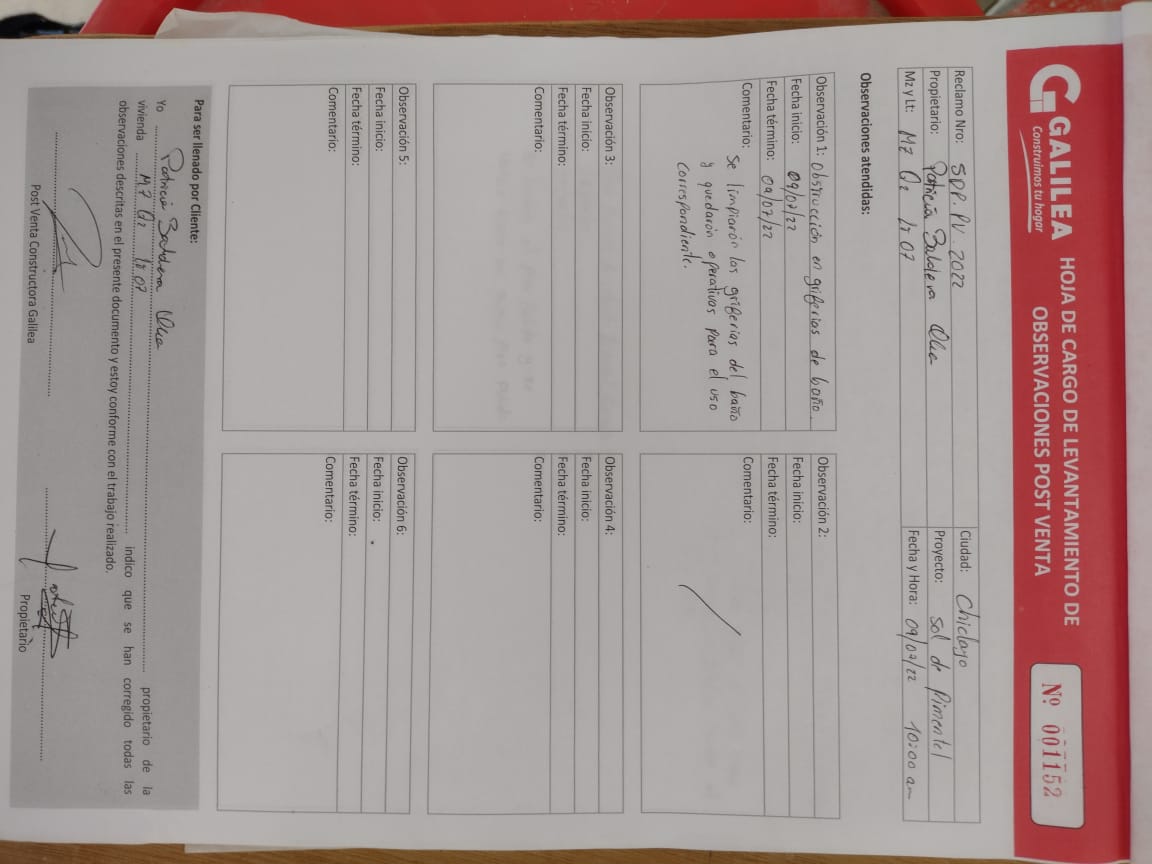 GALILEA
Construimos tu hogar
HOJA DE CARGO DE LEVANTAMIENTO DE
OBSERVACIONES POST VENTA
Nº 001152
Reclamo Nro: SDP. PV. 2022
Ciudad: Chiclayo
Propietario: Patricia Baldera
Proyecto: Sol de Pimentel
Mz y Lt: MZ Q2 lt 07
Fecha y Hora: 09/07/22 10:00 am
Observaciones atendidas:
Observación 1: Obstrucción en griferias de baño.
Fecha inicio: 09/07/22
Fecha término: 09/07/22
Comentario:
Se limpiarón las griferias del baño
y quedarón operativas para el uso
correspondiente.
Observación 2:
Fecha inicio:
Fecha término:
Comentario:
Observación 3:
Fecha inicio:
Fecha término:
Comentario:
Observación 4:
Fecha inicio:
Fecha término:
Comentario:
Observación 5:
Fecha inicio:
Fecha término:
Comentario:
Observación 6:
Fecha inicio:
Fecha término:
Comentario:
Para ser llenado por Cliente:
Yo Patricia Baldera propietario de la
vivienda MZ Q2 lt 07 indico que se han corregido todas las
observaciones descritas en el presente documento y estoy conforme con el trabajo realizado.
Post Venta Constructora Galilea
Propietario